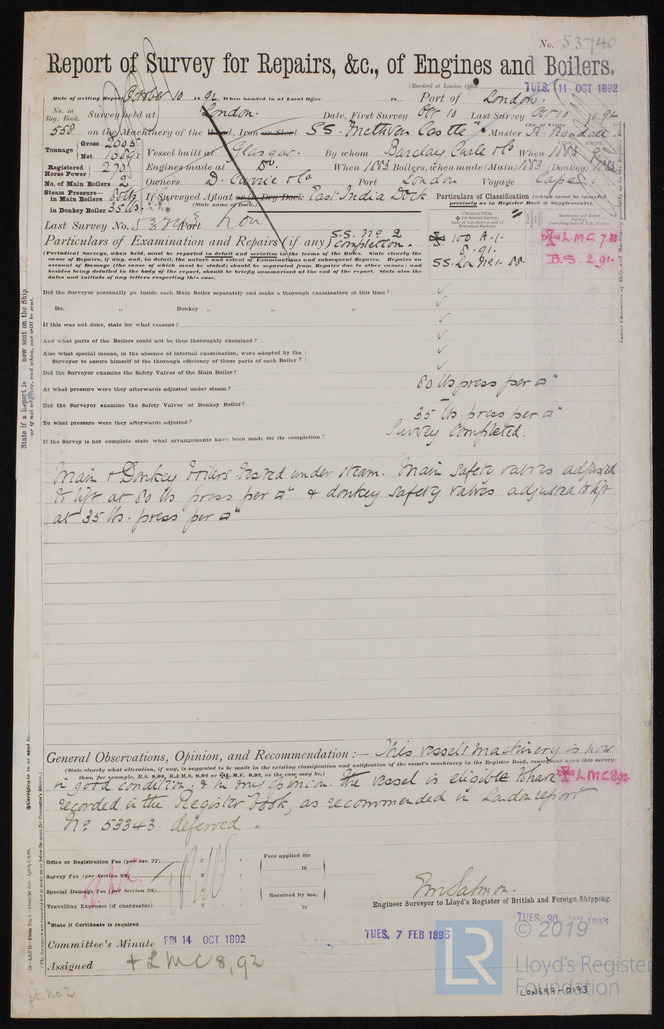 No. 53740
Report of Survey for Repairs, &c., of Engines and Boilers.
(Received at London Office TUES. 11 OCT 1892
Date of writing Report October 10 92 When handed in at Local Office Port of London
No. in Reg. Book. Survey held at London. Date, First Survey Oct 10 Last Survey Oct 10 1892
558 on the Machinery of the Wood, Iron or Steel S.S. "Methven Castle" Master R. Rendall
Tonnage Gross 2605 Net 1689
Vessel built at Glasgow. By whom Barclay Curle & Co When 1883
Registered Horse Power 270 Engines made at Do. When 1883 Boilers, when made (Main) 1883 (Donkey) 1883
No. of Main Boilers 2 Owners D. Currie & Co Port London Voyage Cape
Steam Pressure in Main Boilers 80 lb If Surveyed Afloat or in Dry Dock East India Dock
(State name of Dock.)
in Donkey Boiler 35 lb
Particulars of Classification (which must be inserted precisely as in Register Book & Supplements).
Last Survey No. Port Lon
Particulars of Examination and Repairs (if any) S.S. No 2 Completion.
100 A.1.
8.91.
SS. Lon No 1. 88.
L.M.C. 7.88
B.S. 2.91.
Did the Surveyor personally go inside each Main Boiler separately and make a thorough examination at this time?
Do. " Donkey " "
If this was not done, state for what reasons?
And what parts of the Boilers could not be thus thoroughly examined?
Also what special means, in the absence of internal examination, were adopted by the Surveyor to assure himself of the thorough efficiency of those parts of each Boiler?
Did the Surveyor examine the Safety Valves of the Main Boiler?
At what pressure were they afterwards adjusted under steam? 80 lbs press per □"
Did the Surveyor examine the Safety Valves of Donkey Boiler?
To what pressure were they afterwards adjusted? 35 lbs. press per □"
If the Survey is not complete state what arrangements have been made for its completion? Survey Completed.
Main & Donkey boilers tested under steam. Main safety valves adjusted
to lift at 80 lbs press per □" & donkey safety valves adjusted to lift
at 35 lbs. press per □"
General Observations, Opinion, and Recommendation:— This vessel's machinery is now
in good condition & in my opinion the vessel is eligible to have L.M.C. 8.92
recorded in the Register Book, as recommended in London report
No 53343 deferred.
Office or Registration Fee (per Sec. 27)
Survey Fee (per Section 28)
Special Damage Fee (per Section 28)
Travelling Expenses (if chargeable)
Fees applied for
Received by me,
*State if Certificate is required
E.W. Salmon.
Engineer Surveyor to Lloyd's Register of British and Foreign Shipping.
Committee's Minute FRI 14 OCT 1892
TUES. 7 FEB 1893
TUES. 30 1893
Assigned + LMC 8,92
pt. no. 2
LR © 2019
Lloyd's Register Foundation
LON697-0193